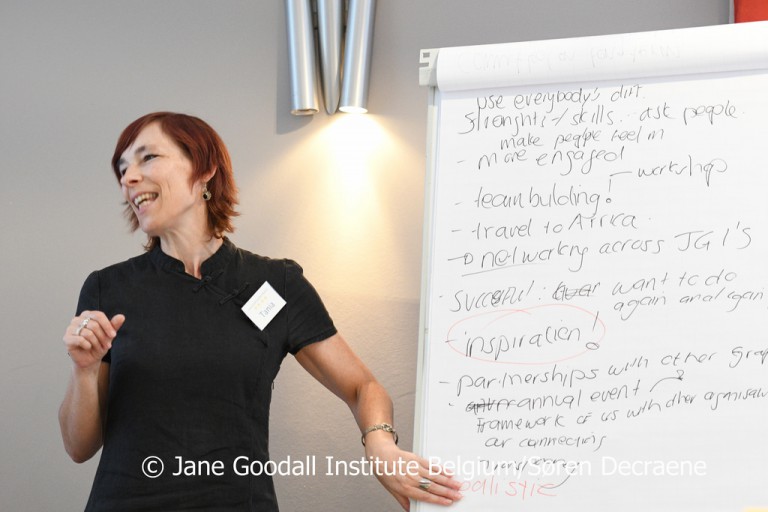 use everybody's diff.
skills. ask people.
make people feel in
- more engaged
- teambuilding! workshop
- travel to Africa.
networking across JGI's
succesful: want to do
again and again
- inspiration!
- partnerships with other
annual event
framework of us with other
our connecting
Tania
© Jane Goodall Institute Belgium/Sören Decraene